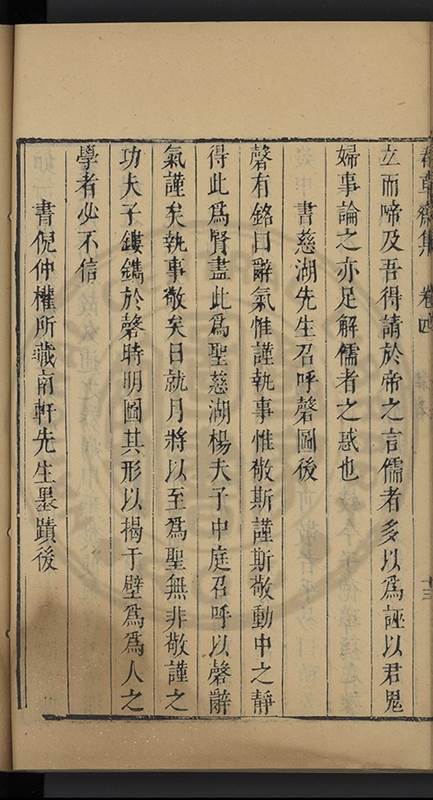 齋集 卷四
立而啼及吾得請於帝之言儒者多以爲誣以君鬼
婦事論之亦足解儒者之惑也
書慈湖先生召呼磬圖後
磬有銘曰辭氣惟謹執事惟敬斯謹斯敬動中之靜
得此爲賢盡此爲聖慈湖楊夫子中庭召呼以磬辭
氣謹矣執事敬矣日就月將以至爲聖無非敬謹之
功夫子鏤鐫於磬時明圖其形以揭于壁爲爲人之
學者必不信
書倪仲權所藏南軒先生墨蹟後